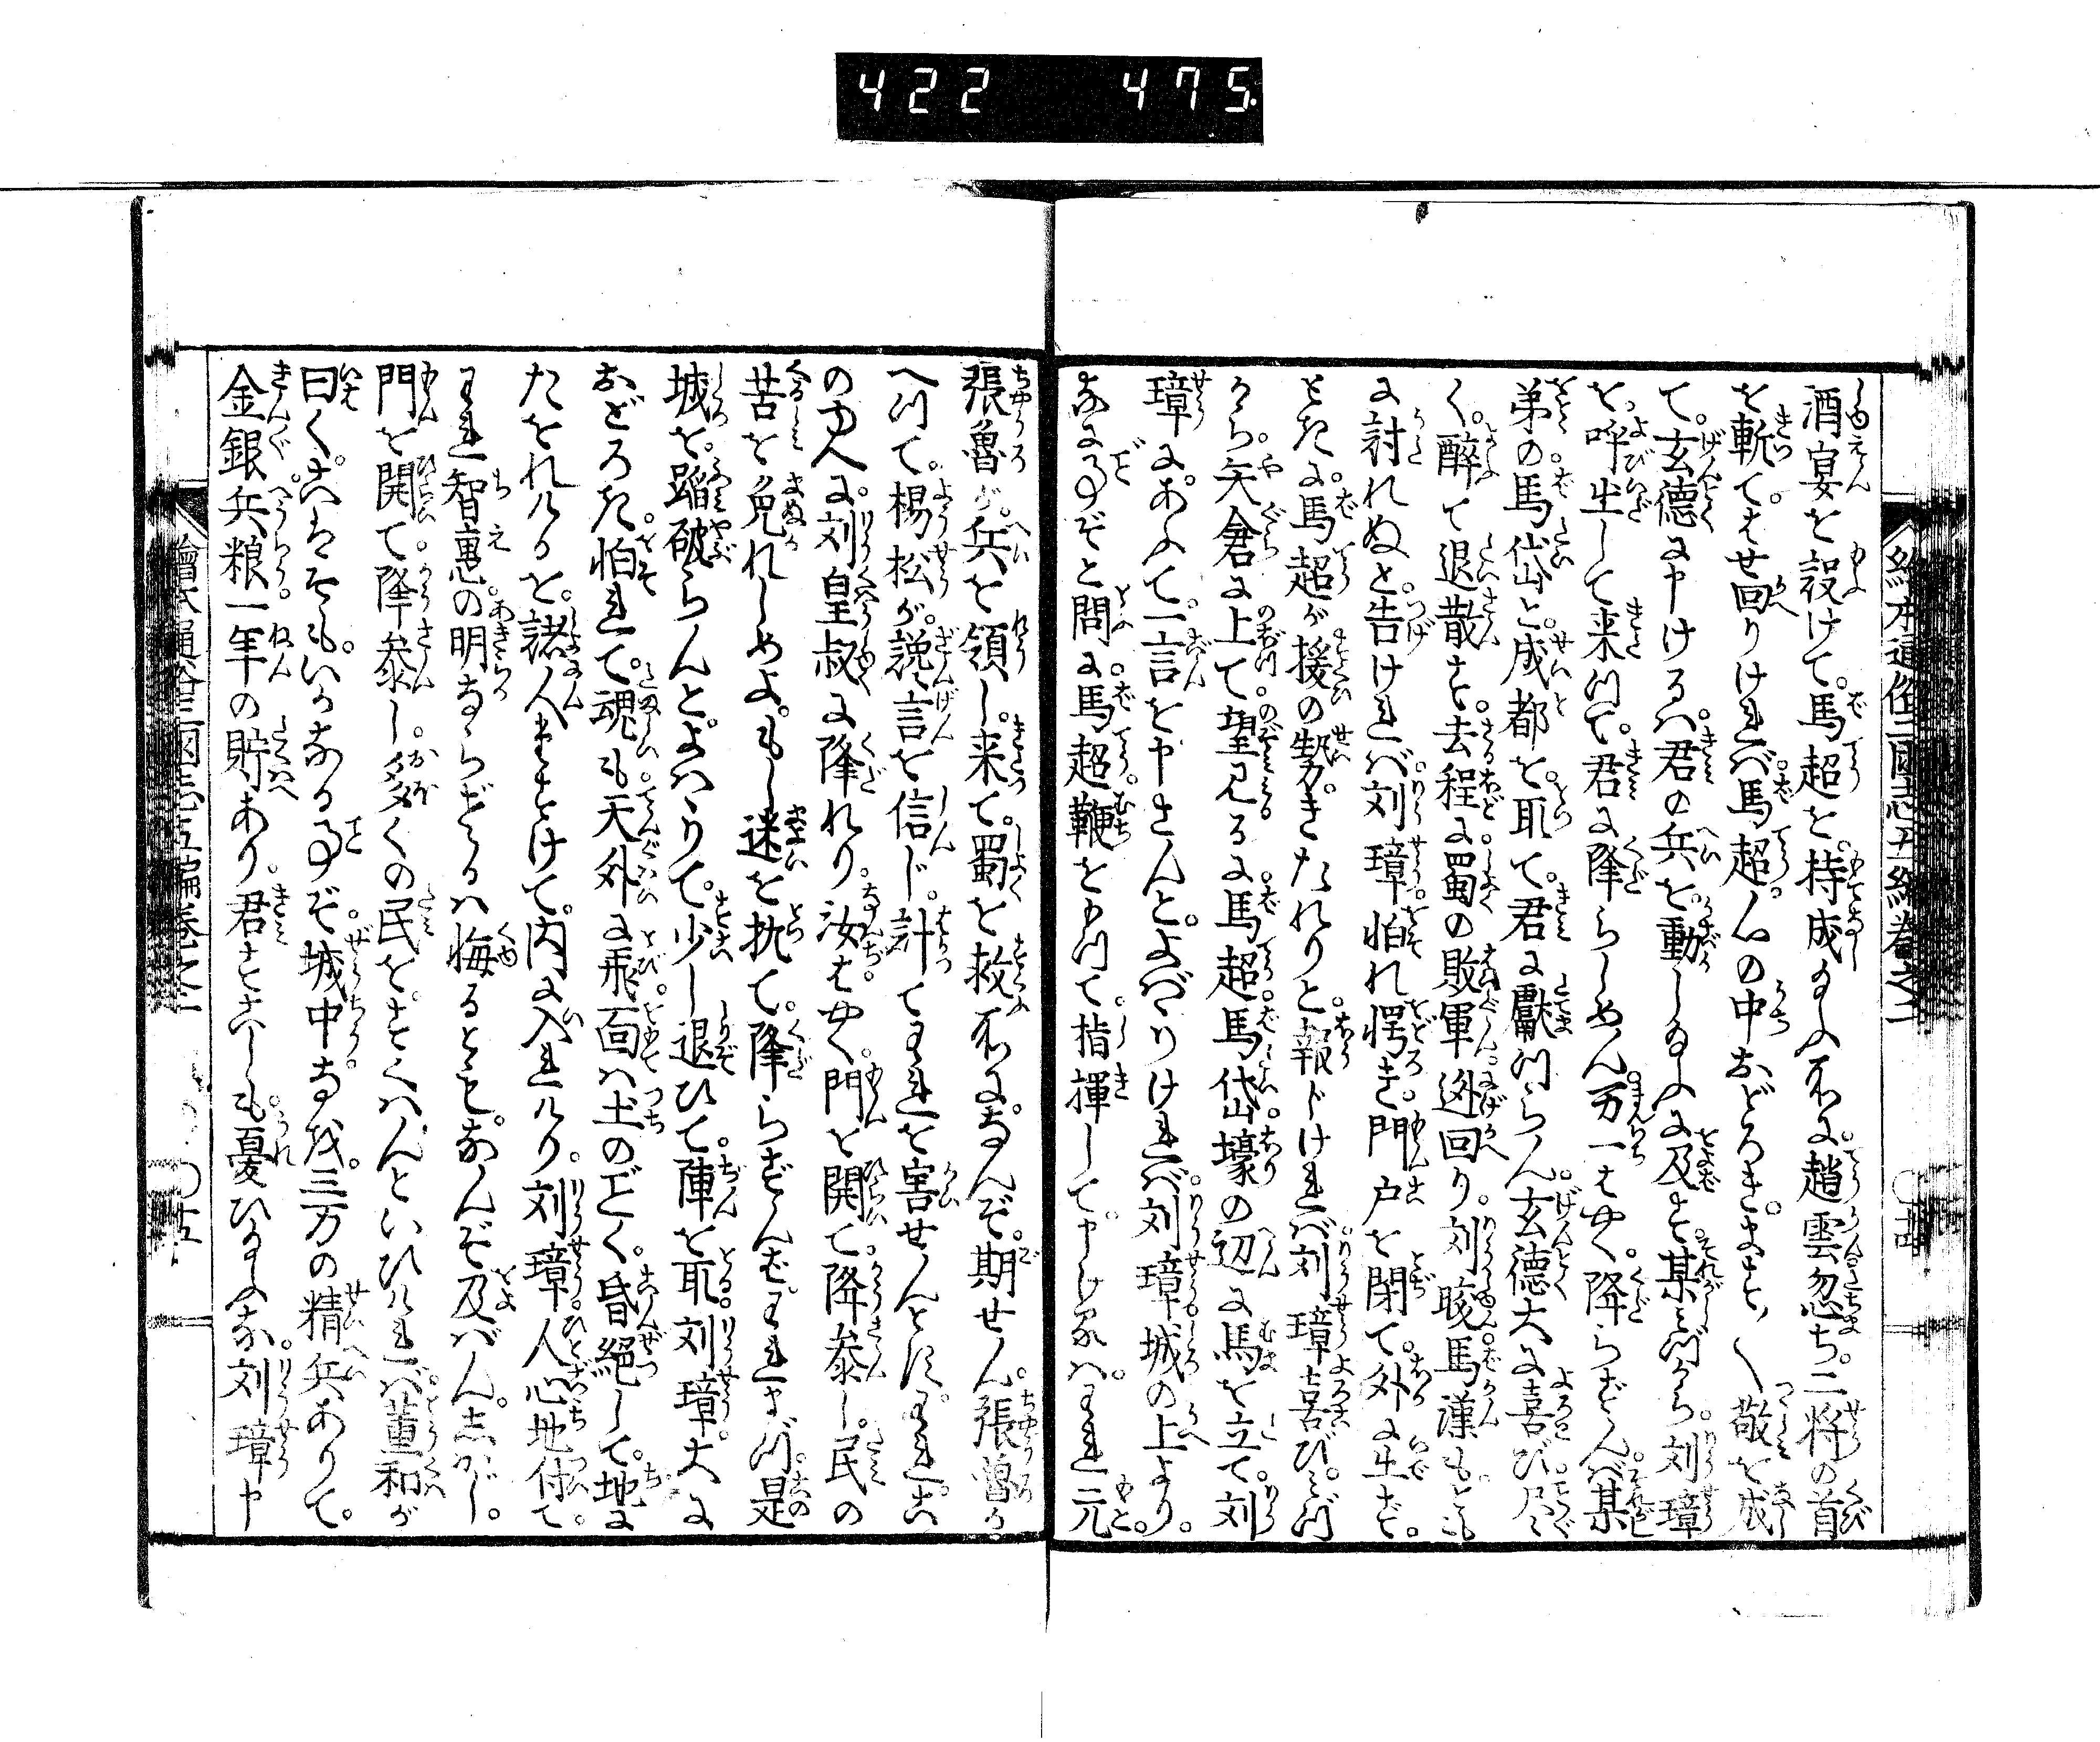 422 475
酒宴を設けて。馬超を。待成給ふ所に。趙雲忽ち。二将の首
を斬て。はせ回りければ。馬超。心の中おどろき。ます〳〵敬を成
て。玄徳に申けるは。君の兵を。動し給ふに及ず。某みづから。刘璋
を。呼出して来つて。君に降らしめん。万一はやく。降らずんば。某
弟の。馬岱と。成都を。取て。君に献つらん。玄徳大に喜び。尽く
く。酔て退散す。去程に。蜀の敗軍。迯回り。刘晙。馬漢もとも
に討れぬと。告ければ。刘璋。怕れ愕き。門戸を閉て。外に出ず。
ときに。馬超が援の勢。きたれりと。報じければ。刘璋喜び。みづ
から。矢倉に上て。望見るに。馬超。馬岱。壕の辺に馬を立て。刘
璋に。あふて。一言を申さんと。よばゝりければ。刘璋。城の上より。
なに事ぞと問に。馬超。鞭をもつて。指揮して。申けるは。われ元
張魯が。兵を領し。来て。蜀を救ふ所に。なんぞ。期せん。張魯か
へつて。楊松が。讒言を信じ。計てわれを害せんとす。われこ
のゆへに。刘皇叔に降れり。汝はやく。門を開て。降参し。民の
苦を免れしめよ。もし迷を执て。降らずんば。われまづ。是
城を。蹈破らんと。よはりて。少し退ひて。陣を取。刘璋。大に
おどろき。怕れて。魂も天外に飛。面は土のごとく。昏絶して。地に
たをれけるを。諸人たすけて。内に入れけり。刘璋。人心地付て。
われ智惠の明ならざるは。悔るとも。なんぞ及ばん。しかじ。
門を開て。降参し。多くの民を。すくはんといひければ。董和が
曰く。こはそも。いかなる事ぞ。城中なほ。三万の精兵ありて。
金銀。兵粮。一年の貯あり。君すこしも。憂ひ給ふな。刘璋申